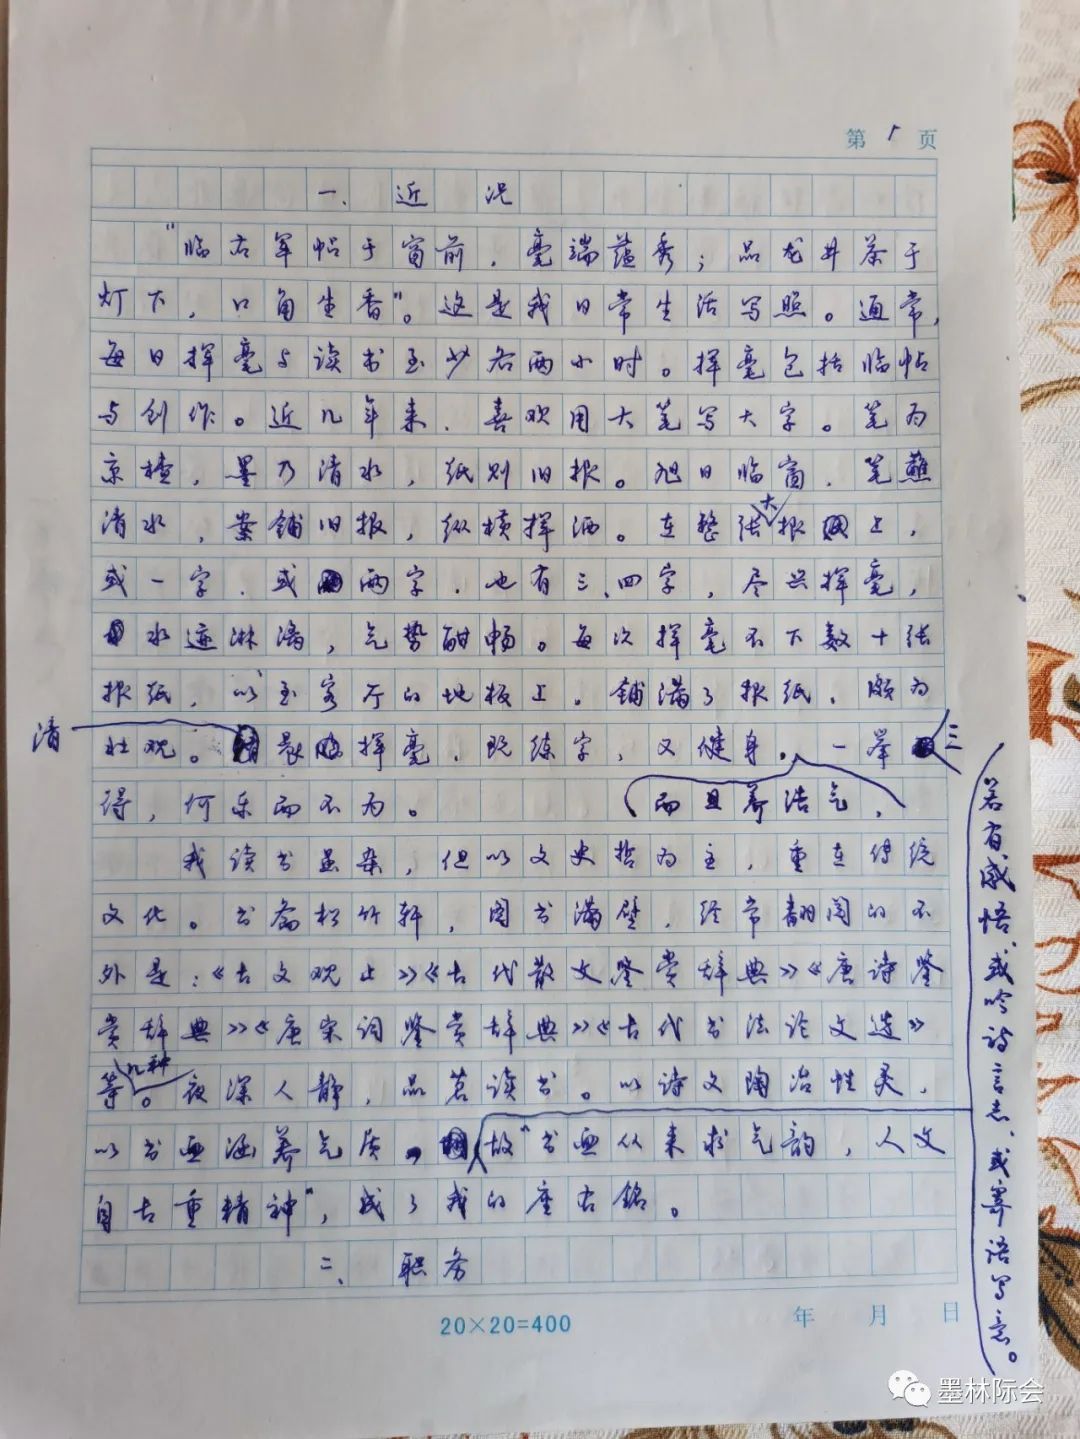 第1页
一、近况
“临右军帖于窗前，毫端蕴秀；品龙井茶于
灯下，口角生香”。这是我日常生活写照。通常，
每日挥毫与读书至少各两小时。挥毫包括临帖
与创作。近几年来，喜欢用大笔写大字。笔为
京楂，墨乃清水，纸则旧报。旭日临窗，笔蘸
清水，案铺旧报，纵横挥洒。在整张大报上，
或一字，或两字，也有三、四字，尽兴挥毫，
水迹淋漓，气势酣畅。每次挥毫不下数十张
报纸，以至客厅的地板上，铺满了报纸，颇为
壮观。清晨挥毫，既练字，又健身，一举三
得，何乐而不为。
而且养浩气，
我读书虽杂，但以文史哲为主，重在传统
文化。书斋松竹轩，图书满壁，经常翻阅的不
外是：《古文观止》《古代散文鉴赏辞典》《唐诗鉴
赏辞典》《唐宋词鉴赏辞典》《古代书法论文选》
等几种。夜深人静，品茗读书。以诗文陶冶性灵，
以书画涵养气质。故“书画从来求气韵，人文
自古重精神”，成了我的座右铭。
若有感悟，或吟诗言志，或寄语写意。
二、职务
20×20=400
年 月 日
墨林际会